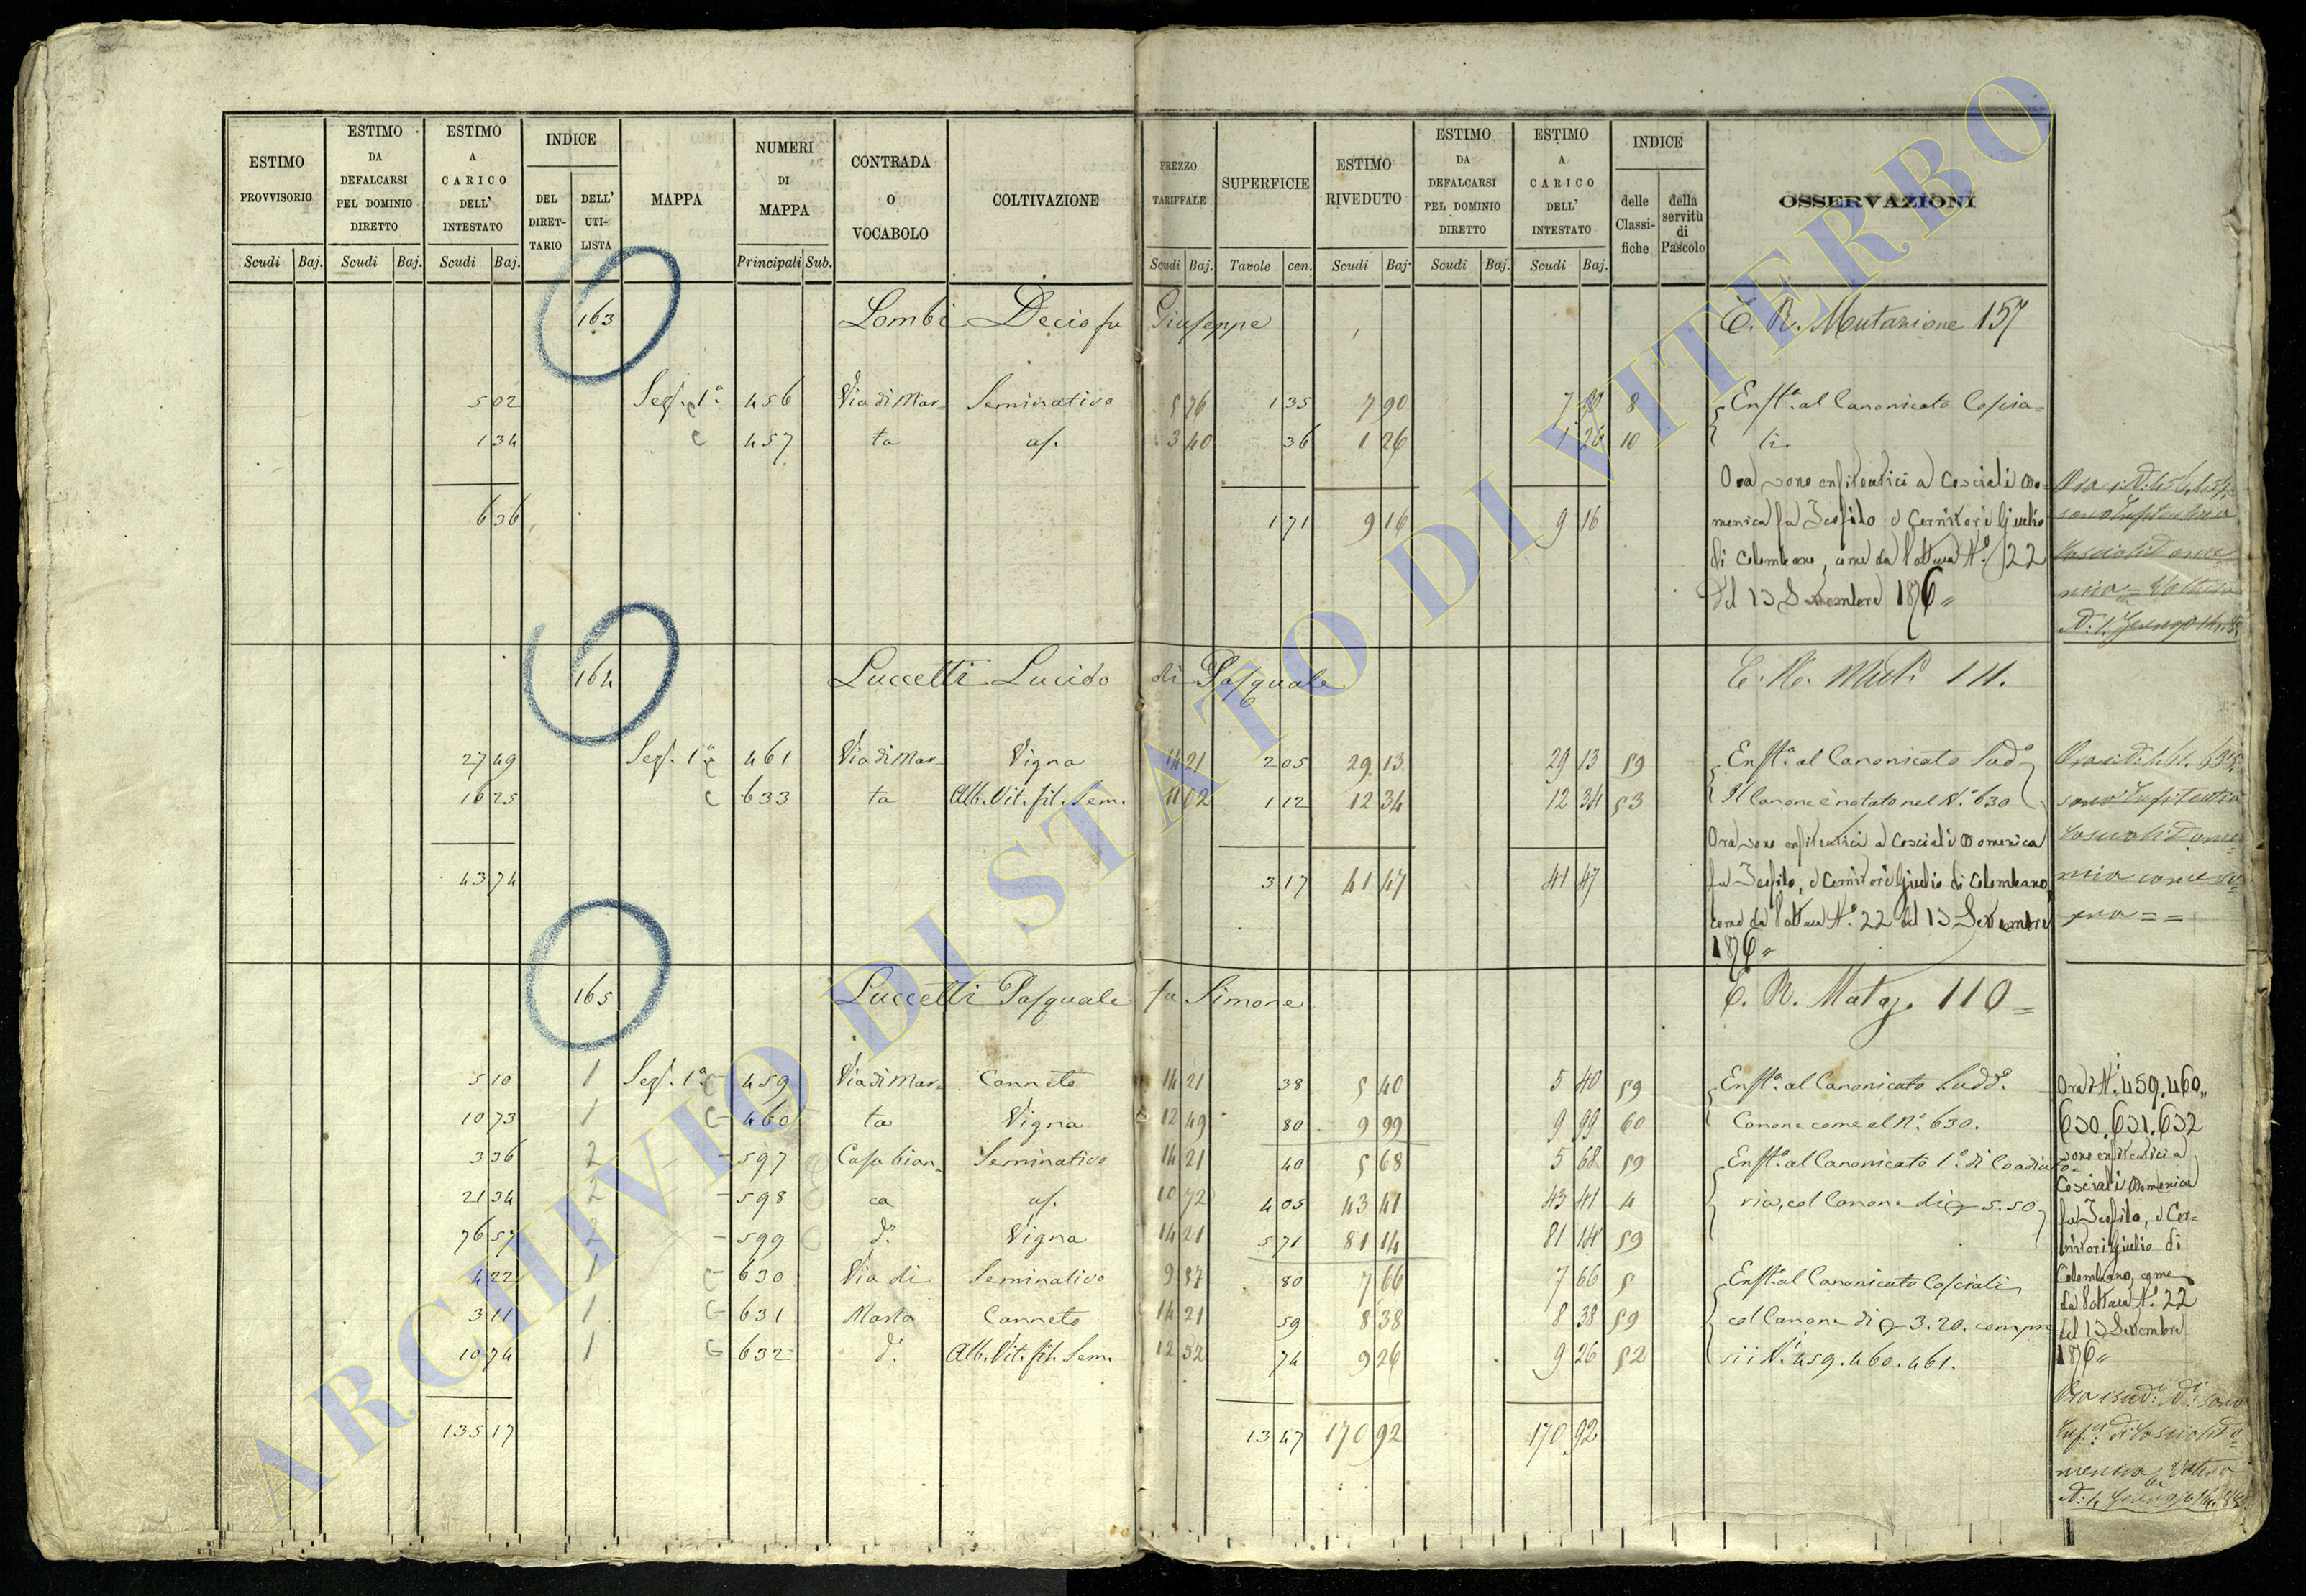 ESTIMO PROVVISORIO
ESTIMO DA DEFALCARSI PEL DOMINIO DIRETTO
ESTIMO A CARICO DELL' INTESTATO
INDICE
DEL DIRET-TARIO
DELL' UTI-LISTA
MAPPA
NUMERI DI MAPPA
CONTRADA O VOCABOLO
COLTIVAZIONE
PREZZO TARIFFALE
SUPERFICIE
ESTIMO RIVEDUTO
ESTIMO DA DEFALCARSI PEL DOMINIO DIRETTO
ESTIMO A CARICO DELL' INTESTATO
INDICE
delle Classi-fiche
della servitù di Pascolo
OSSERVAZIONI
Scudi Baj. Scudi Baj. Scudi Baj. Principali Sub. Scudi Baj. Tavole cen. Scudi Baj. Scudi Baj. Scudi Baj.
163 Lombi Decio fu Giuseppe E. R. Mutazione 157
5 02 Sez. 1ª 456 Via di Mar- Seminativo 5 76 1 35 7 90 7 90 8 Enft.ª al Canonicato Coscia=
1 34 457 ta as. 3 40 36 1 26 1 26 10 li
6 36 1 71 9 16 9 16
Ora sono enfiteutici a Cosciali Do=
menica fu Teofilo e Cernitori Giulio
di Colombano, come da Voltura N.º 22
del 13 Settembre 1876
164 Luccetti Lucido di Pasquale E. R. Mut. 111.
27 49 Sez. 1ª 461 Via di Mar- Vigna 14 21 2 05 29 13 29 13 59 Enft.ª al Canonicato Sudº
16 25 633 ta Alb. Vit. fil. Sem. 11 02 1 12 12 34 12 34 53 Il Canone è notato nel N.º 630
43 74 3 17 41 47 41 47
Ora sono enfiteutici a Cosciali Domenica
fu Teofilo, e Cernitori Giulio di Colombano,
come da Voltura N.º 22 del 13 Settembre
1876
165 Luccetti Pasquale fu Simone E. R. Mutaz. 110
5 10 1 Sez. 1ª 459 Via di Mar- Canneto 14 21 38 5 40 5 40 59 Enft.ª al Canonicato Sudd.º
10 73 1 460 ta Vigna 12 49 80 9 99 9 99 60 Canone come al N.º 630.
3 36 2 597 Casa bian- Seminativo 14 21 40 5 68 5 68 59 Enft.ª al Canonicato 1.º di Coadiuto-
21 34 2 598 ca as. 10 72 4 05 43 41 43 41 4 ria, col Canone di 5.50
76 57 2 599 d.º Vigna 14 21 5 71 81 14 81 14 59
4 22 1 630 Via di Seminativo 9 57 80 7 66 7 66 5 Enft.ª al Canonicato Cosciali
3 11 1 631 Marta Canneto 14 21 59 8 38 8 38 59 col Canone di 3.20. compre
10 74 1 632 d.º Alb. Vit. fil. Sem. 12 52 74 9 26 9 26 52 si i N.i 459. 460. 461.
135 17 13 47 170 92 170 92
Ora i N.i 459. 460.
630. 631. 632
sono enfiteutici a
Cosciali Domenica
fu Teofilo, e Cer=
nitori Giulio di
Colombano, come
da Voltura N.º 22
del 13 Settembre
1876
ARCHIVIO DI STATO DI VITERBO